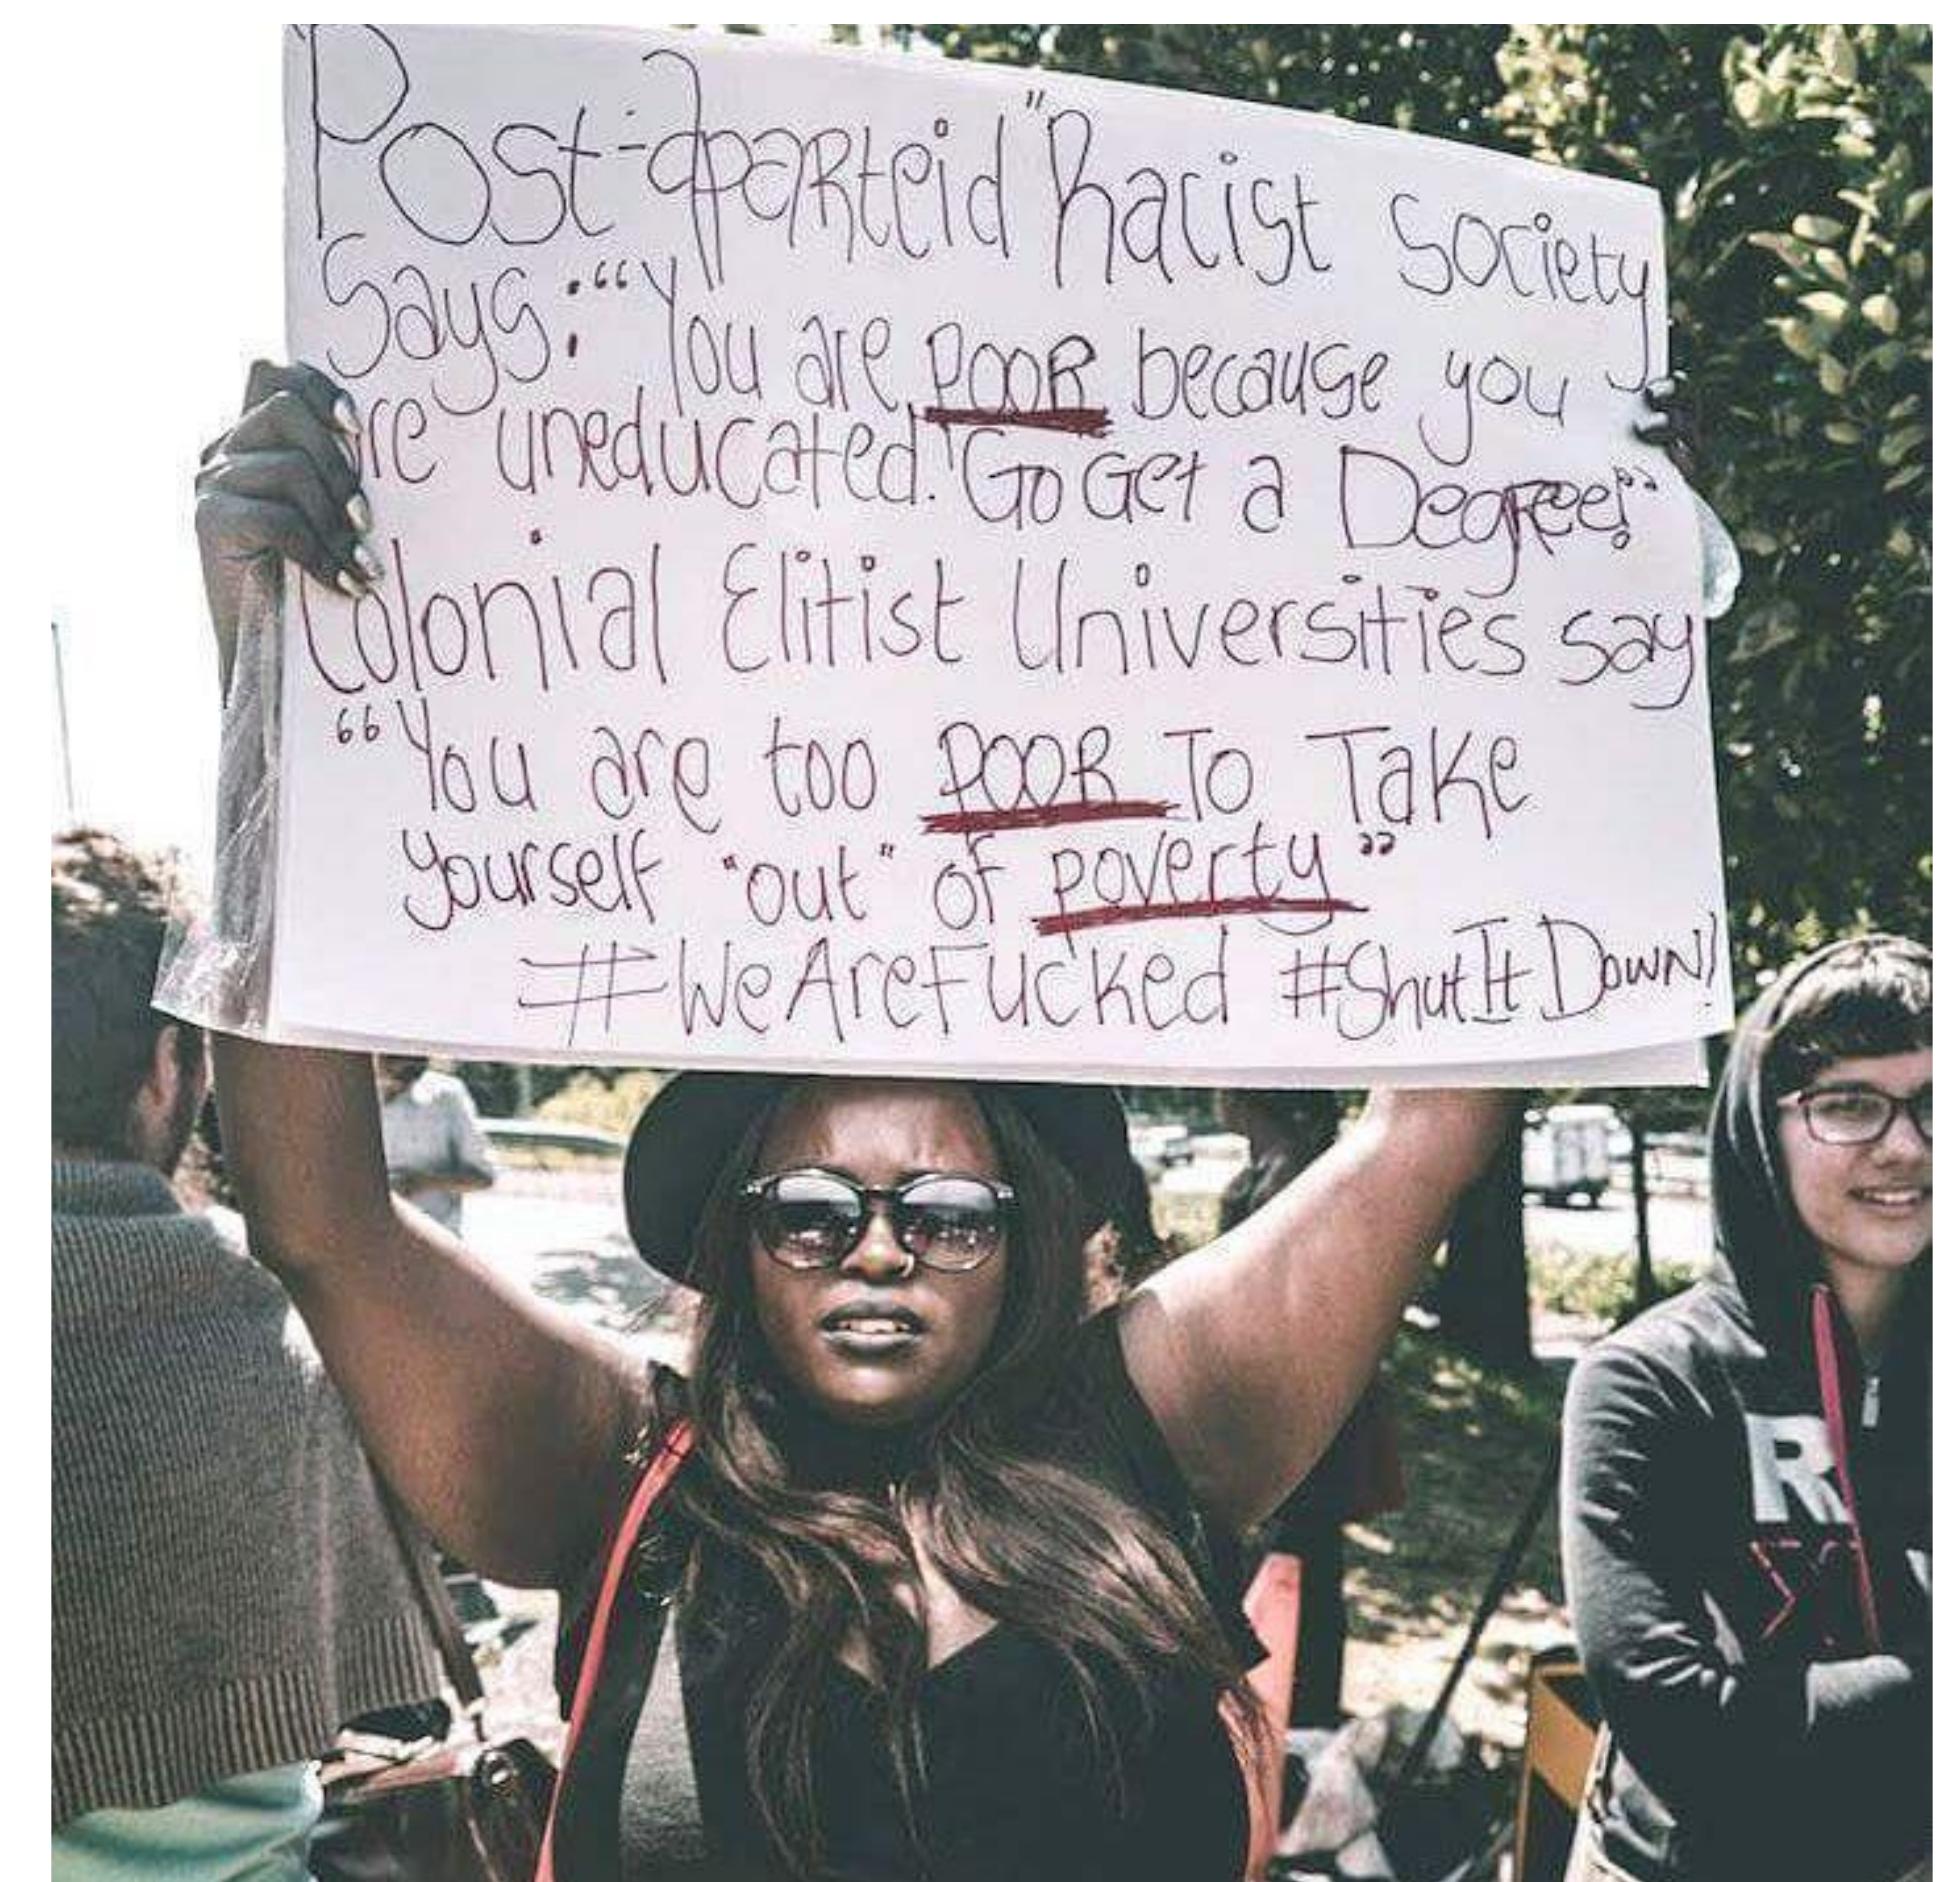 Post-Aparteid "Racist society
Says: "You are POOR because you
are uneducated. "Go Get a Degree!"
Colonial Elitist Universities say
"You are too POOR To Take
yourself "out" of poverty"
#WeAreFucked #ShutItDown!
R